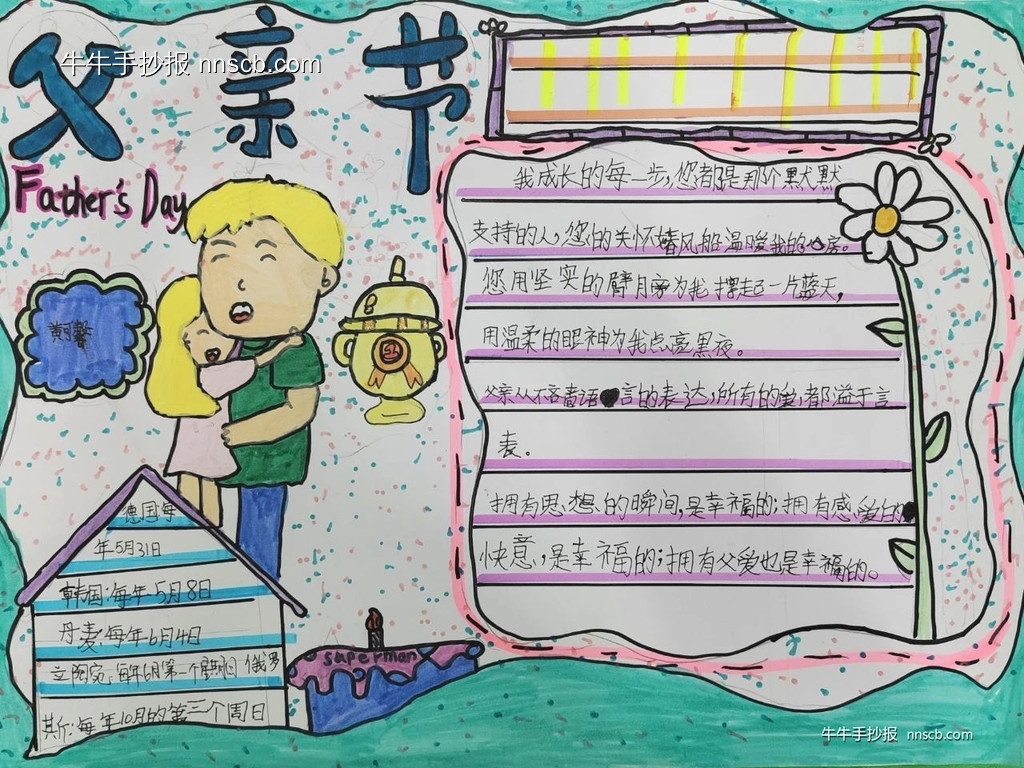 父亲节
牛牛手抄报 nnscb.com
Father's Day
我成长的每一步,您都是那个默默
支持的人,您的关怀如春风般温暖我的心房。
您用坚实的臂膀为我撑起一片蓝天,
用温柔的眼神为我点亮黑夜。
父亲从不吝啬语言的表达,所有的爱,都溢于言
表。
拥有思想的瞬间,是幸福的;拥有感爱的
快意,是幸福的;拥有父爱也是幸福的。
德国:每
年5月31日
韩国:每年5月8日
丹麦:每年6月4日
立陶宛:每年6月第一个星期日 俄罗
斯:每年10月的第三个周日
superman
牛牛手抄报 nnscb.com